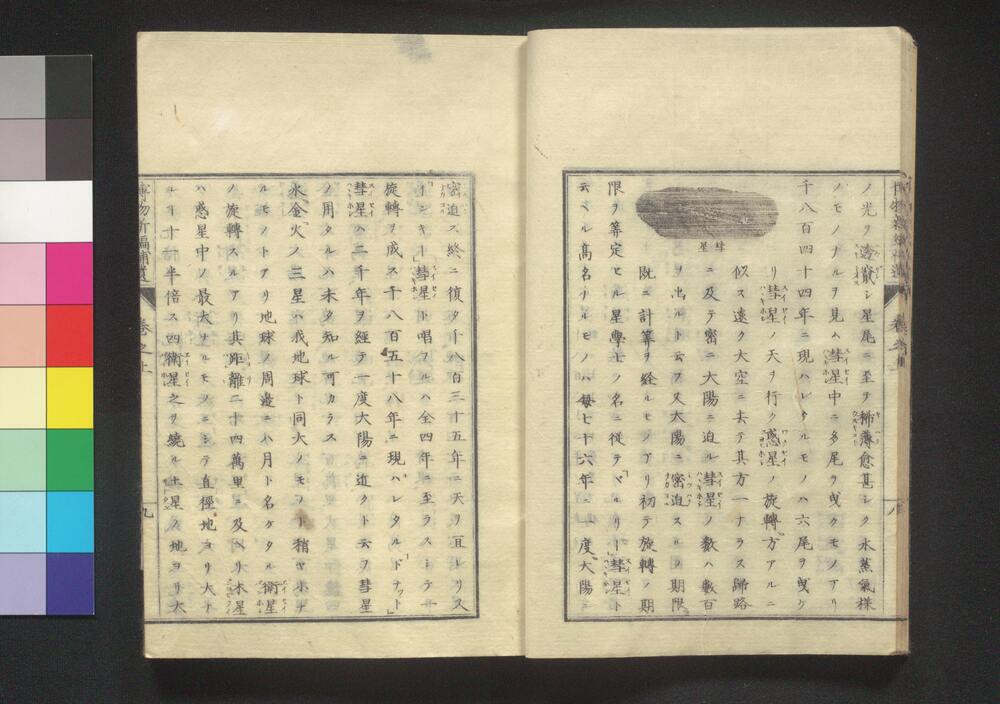 ノ光ヲ透竄シ星尾ニ至ヲ稀薄愈甚シク水蒸氣様
ノモノナルヲ見ル彗星中ニ多尾ヲ曳クモノアリ
千八百四十四年ニ現ハレタルモノハ六尾ヲ曳ケ
リ彗星ノ天ヲ行ク惑星ノ旋轉方アルニ
似ス遠ク大空ニ去テ其方一ナラス歸路
ニ及テ密ニ大陽ニ迫ル彗星ノ數ハ數百
ヲ出ルト云フ又太陽ニ密迫スルノ期限
既ニ計算ヲ経ルモノアリ初テ旋轉ノ期
限ヲ算定セル星學士ノ名ニ從テハルリー彗星ト
云ヘル高名ナルモノハ毎七十六年ニ一度大陽ニ
彗星
密迫ス終ニ復タ千八百三十五年ニ天ヲ亘レリス
インキー彗星ト唱フルハ全四年ニ至ラスシテ一
旋轉ヲ成ス千八百五十八年ニ現ハレタルドナット
彗星ハ二千年ヲ經テ一度大陽ニ近クト云フ彗星
ノ周タルハ未タ知ル可カラス
水金火ノ三星ハ我地球ト同大ノモノト稍ヤ小ナ
ルモノトアリ地球ノ周邉ニハ月ト名ケタル衛星
ノ旋轉スルアリ其距離二十四萬里ニ及ヘリ木星
ハ惑星中ノ最大ナルモノニシテ直徑地ヨリ大ナ
ルヿ十一半倍ス四衛星之ヲ繞ル土星ハ地ヨリ大
博物新編補遺
卷之上
九